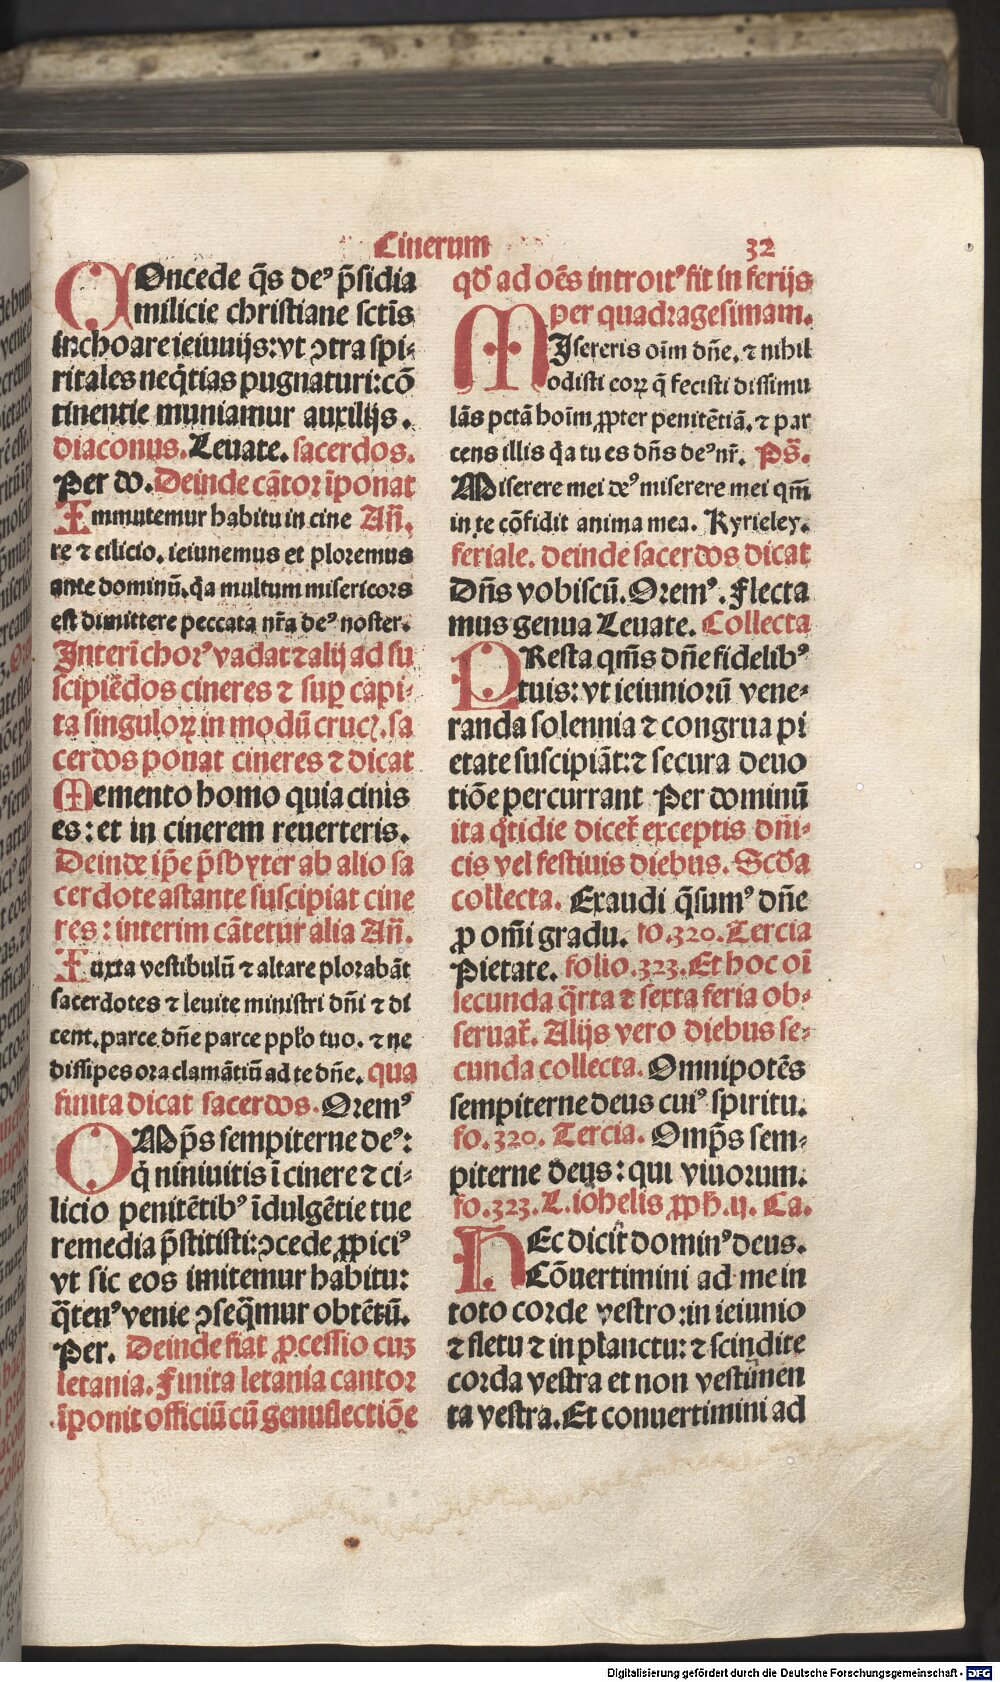 Cinerum 32
COncede q̄s deꝰ p̄sidia
milicie christiane sctīs
inchoare ieiunijs: vt ↄtra spi-
ritales neq̄tias pugnaturi: cō
tinentie muniamur auxilijs.
diaconus. Leuate. sacerdos.
Per do. Deinde cātor īponat
Immutemur habitu in cine Añ.
re ⁊ cilicio. ieiunemus et ploremus
ante dominū. q̄a multum misericors
est dimittere peccata nr̄a deꝰ noster.
Interī chorꝰ vadat ⁊ alij ad su
scipiēdos cineres ⁊ suꝑ capi-
ta singuloꝝ in modū crucꝭ. sa
cerdos ponat cineres ⁊ dicat
Memento homo quia cinis
es: et in cinerem reuerteris.
Deinde ip̄e p̄sbyter ab alio sa
cerdote astante suscipiat cine
res: interim cātetur alia Añ.
Iuxta vestibulū ⁊ altare plorabāt
sacerdotes ⁊ leuite ministri dn̄i ⁊ di
cent. parce dn̄e parce ppl̄o tuo. ⁊ ne
dissipes ora clamātiū ad te dn̄e. qua
finita dicat sacerdos. Oremꝰ
OMp̄s sempiterne deꝰ:
q̄ niniuitis ī cinere ⁊ ci-
licio penitētibꝰ īdulgētie tue
remedia p̄stitisti: ↄcede ꝓpiciꝰ
vt sic eos imitemur habitu:
q̄tenꝰ venie ↄseq̄mur obtētū.
Per. Deinde fiat ꝓcessio cuꝫ
letania. Finita letania cantor
īponit officiū cū genuflectiōe
qd̄ ad oēs introitꝰ fit in ferijs
per quadragesimam.
MIsereris oīm dn̄e. ⁊ nihil
odisti eoꝝ q̄ fecisti dissimu
lās pctā hoīm ꝓpter penitētiā. ⁊ par
cens illis q̄a tu es dn̄s deꝰ nr̄. Ps̄.
Miserere mei deꝰ miserere mei qm̄
in te cōfidit anima mea. Kyrieley.
feriale. deinde sacerdos dicat
Dn̄s vobiscū. Oremꝰ. Flecta
mus genua Leuate. Collecta
PResta qm̄s dn̄e fidelibꝰ
tuis: vt ieiuniorū vene-
randa solennia ⁊ congrua pi
etate suscipiāt: ⁊ secura deuo
tiōe percurrant Per dominū
ita q̄tidie dicet̄ exceptis dn̄i-
cis vel festiuis diebus. Scd̄a
collecta. Exaudi q̄sumꝰ dn̄e
ꝓ om̄i gradu. fo. 320. Tercia
Pietate. folio. 323. Et hoc oī
secunda q̄rta ⁊ sexta feria ob-
seruat̄. Alijs vero diebus se-
cunda collecta. Omnipotēs
sempiterne deus cuiꝰ spiritu.
fo. 320. Tercia. Omp̄s sem-
piterne deus: qui viuorum.
fo. 323. L. iohelis ꝓph̄. ij. Ca.
HEc dicit dominꝰ deus.
Cōuertimini ad me in
toto corde vestro: in ieiunio
⁊ fletu ⁊ in planctu: ⁊ scindite
corda vestra et non vestimen
ta vestra. Et conuertimini ad
Digitalisierung gefördert durch die Deutsche Forschungsgemeinschaft - DFG